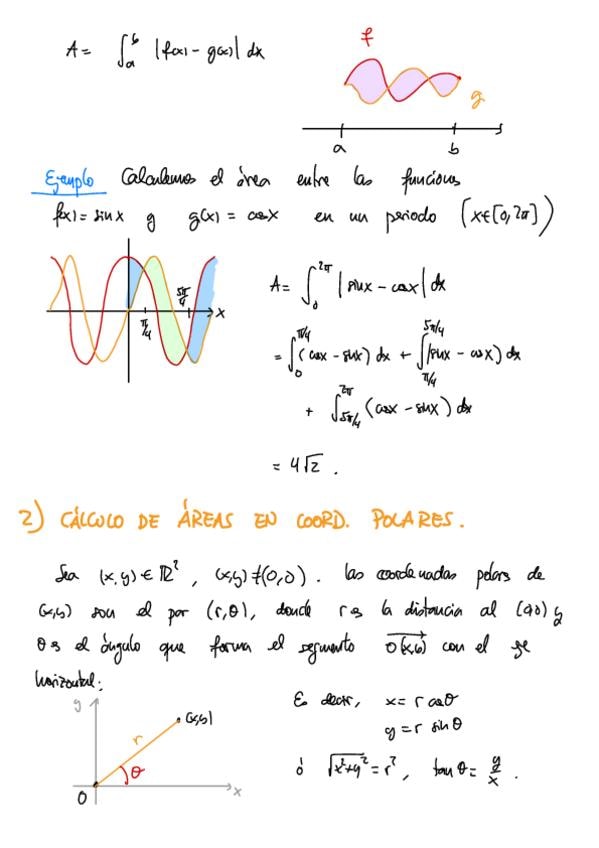 A = ∫_a^b |f(x) - g(x)| dx
f
g
a
b
Ejemplo Calculemos el área entre las funciones
f(x) = sin x y g(x) = cos x en un periodo (x∈[0, 2π])
5π/4
π/4
x
A = ∫_0^{2π} |sin x - cos x| dx
= ∫_0^{π/4} (cos x - sin x) dx + ∫_{π/4}^{5π/4} (sin x - cos x) dx
+ ∫_{5π/4}^{2π} (cos x - sin x) dx
= 4√2 .
2) CÁLCULO DE ÁREAS EN COORD. POLARES.
Sea (x, y) ∈ ℝ², (x,y) ≠ (0,0). Las coordenadas polares de
(x,y) son el par (r, θ), donde r es la distancia al (0,0) y
θ es el ángulo que forma el segmento 0(x,y) con el eje
horizontal:
y
(x,y)
r
θ
0
x
Es decir, x = r cos θ
y = r sin θ
ó √(x²+y²) = r², tan θ = y/x .